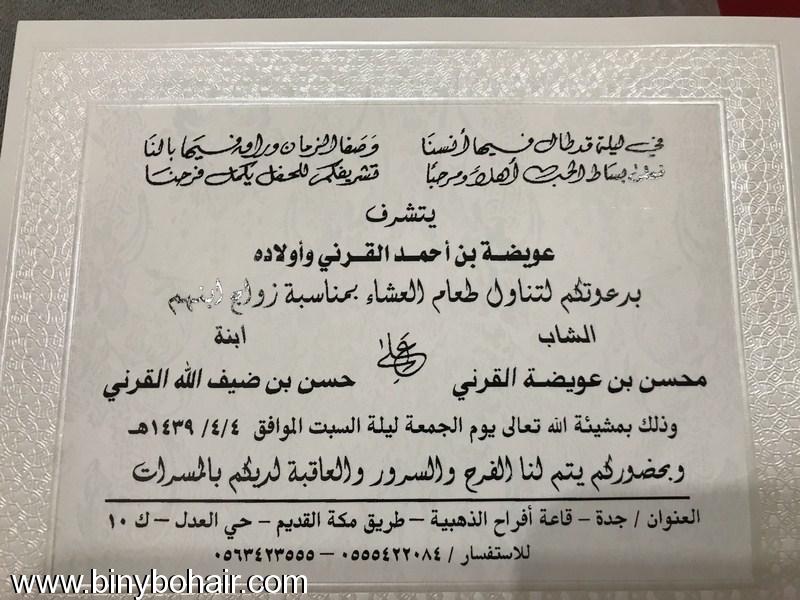 في ليلة قد طال فيها أنسنا وصفا الزمان وراق فيها بالنا
بساط الحب أهلاً ومرحباً تشريفكم للحفل يكمل فرحنا
يتشرف
عويضة بن أحمد القرني وأولاده
بدعوتكم لتناول طعام العشاء بمناسبة زواج ابنهم
الشاب ابنة
محسن بن عويضة القرني على حسن بن ضيف الله القرني
وذلك بمشيئة الله تعالى يوم الجمعة ليلة السبت الموافق ٤/٤/ ١٤٣٩هـ
وبحضوركم يتم لنا الفرح والسرور والعاقبة لديكم بالمسرات
العنوان / جدة – قاعة أفراح الذهبية – طريق مكة القديم – حي العدل – ك ١٠
للاستفسار / ٠٥٥٥٤٢٢٠٨٤ – ٠٥٦٣٤٢٣٥٥٥
www.binybohair.com